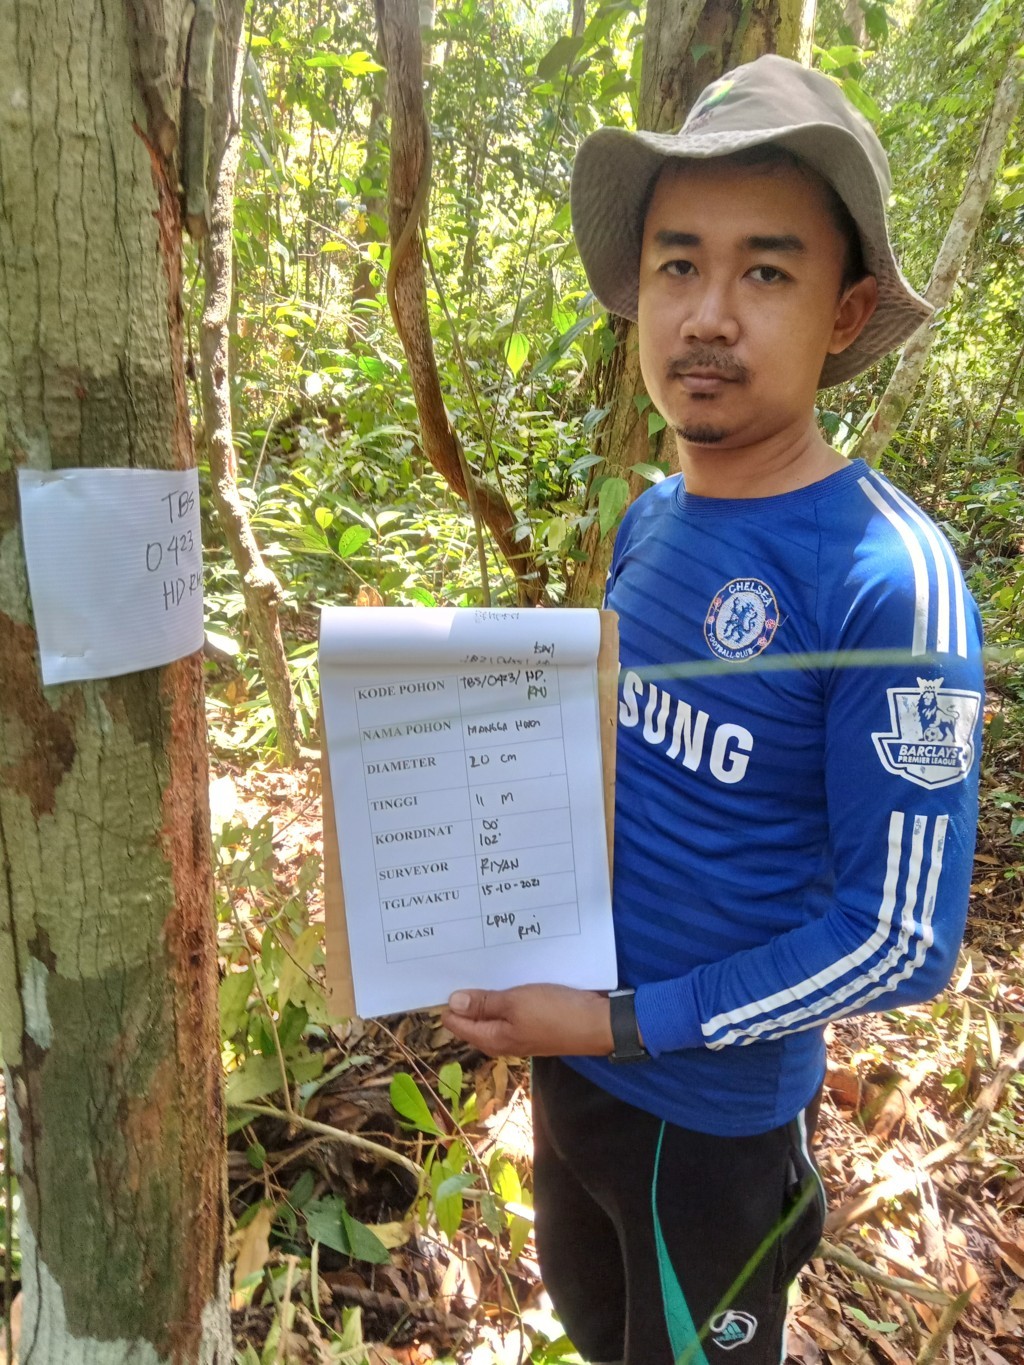 TBS
0423
HD RM
KODE POHON TBS/0423/HD.
RMJ
NAMA POHON MANGGA HUTAN
DIAMETER 20 cm
TINGGI 11 M
KOORDINAT 00°
102°
SURVEYOR RIYAN
TGL/WAKTU 15-10-2021
LOKASI LPHD
RMJ
CHELSEA
FOOTBALL CLUB
SUNG
BARCLAYS
PREMIER LEAGUE
adidas